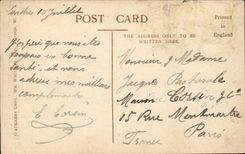 Londres 10 Juillet
POST CARD
Printed in
England
THE ADDRESS ONLY TO BE
WRITTEN HERE.
J'espère que vous êtes
toujours en bonne
santé. et vous
adresse mes meilleurs
compliments
E.
Monsieur & Madame
Jacques
Maison & Cie
15 Rue Montmartre
Paris
France